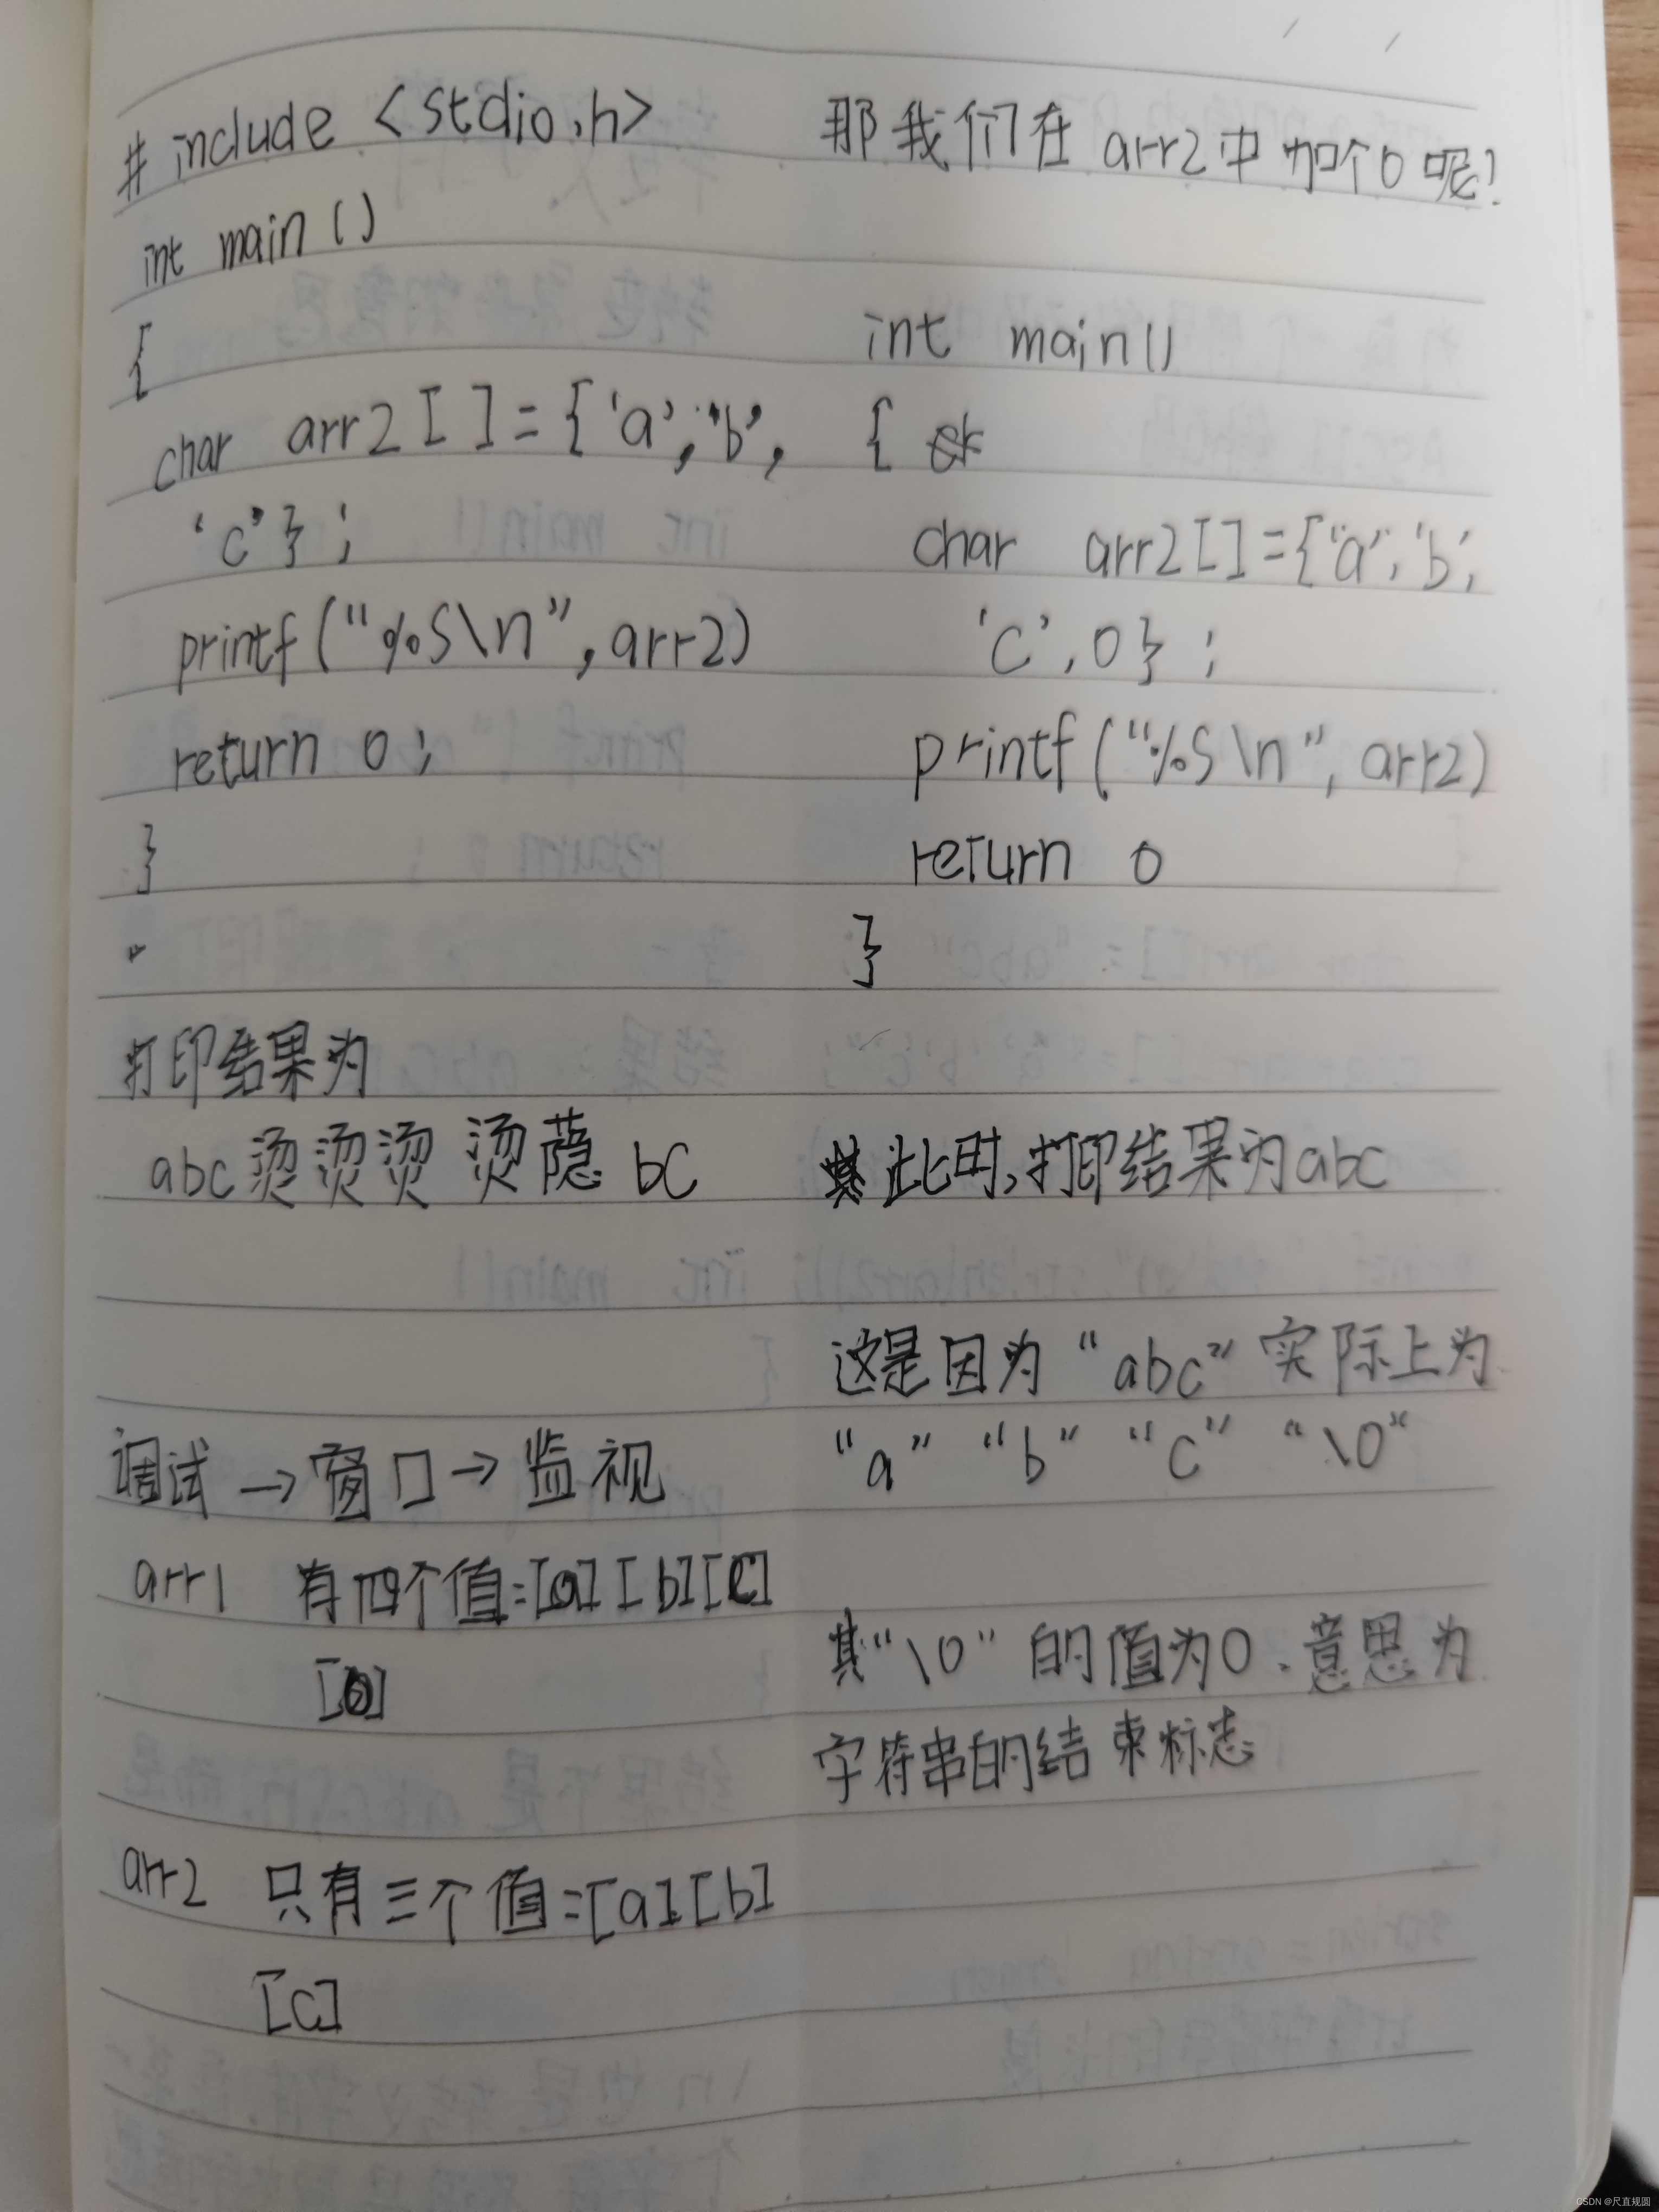 #include <stdio.h>
int main ()
{
char arr2[ ]={'a','b',
'c'};
printf("%s\n",arr2)
return 0;
}
打印结果为
abc烫烫烫 烫隐 bc
调试→窗口→监视
arr1 有四个值=[a][b][c]
[0]
arr2 只有三个值=[a][b]
[c]
那我们在arr2中加个0呢?
int main()
{
char arr2[]={'a','b',
'c',0};
printf("%s\n",arr2)
return 0
}
此时,打印结果为abc
这是因为“abc”实际上为
“a” “b” “c” “\0”
其“\0”的值为0.意思为
字符串的结束标志
CSDN @尺直规圆